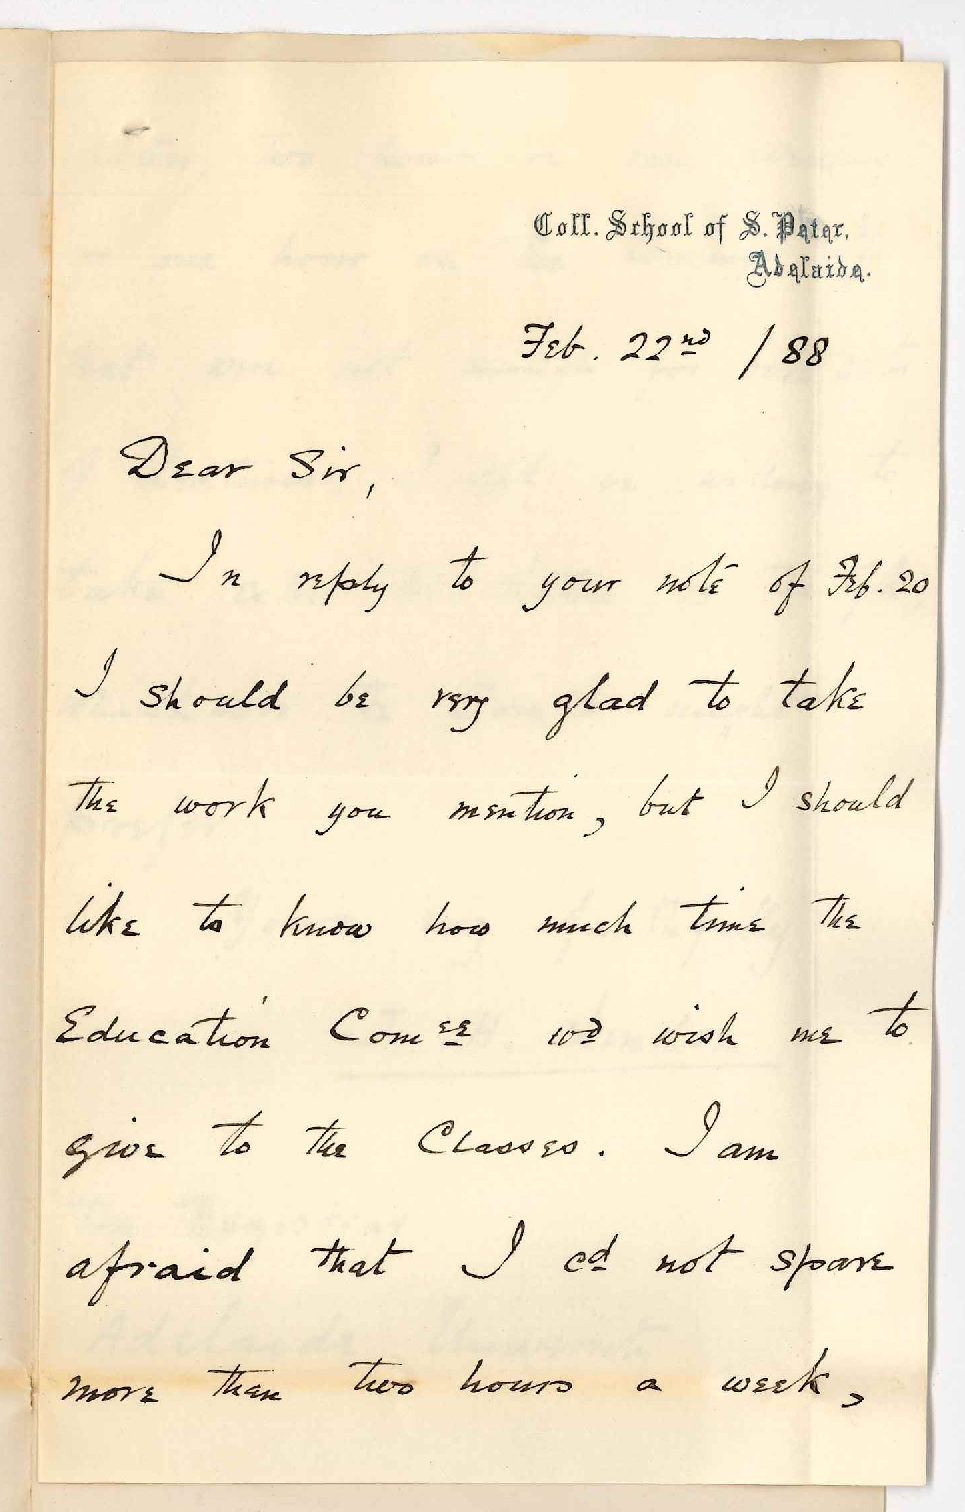 Coll. School of S. Peter,
Adelaide.
Feb. 22nd /88
Dear Sir,
In reply to your note of Feb. 20
I should be very glad to take
the work you mention, but I should
like to know how much time the
Education Comee wd wish me to
give to the Classes. I am
afraid that I cd not spare
more than two hours a week,